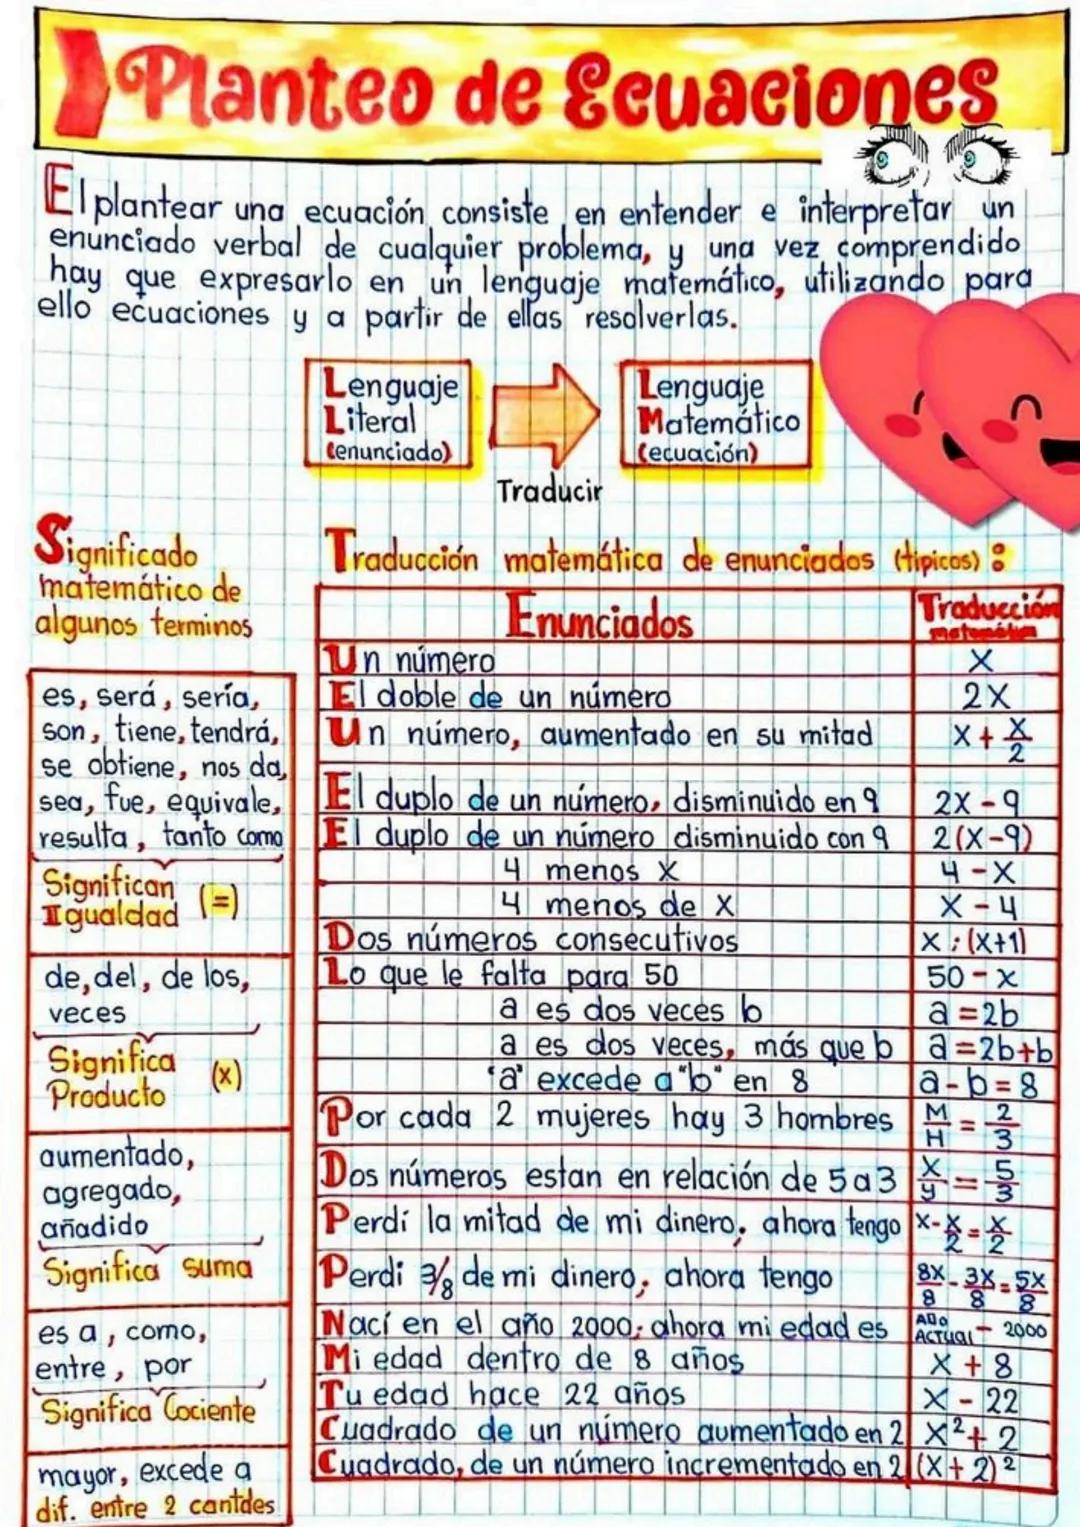 Planteo de Ecuaciones
El plantear una ecuación consiste en entender e interpretar un
enunciado verbal de cualquier problema, y una vez comprendido
hay que expresarlo en un lenguaje matemático, utilizando para
ello ecuaciones y a partir de ellas resolverlas.
Lenguaje
Literal
(enunciado)
Traducir
Lenguaje
Matemático
(ecuación)
Significado
matemático de
algunos terminos
es, será, sería,
son, tiene, tendrá,
se obtiene, nos da,
sea, fue, equivale,
resulta, tanto como
Significan (=)
Igualdad
de, del, de los,
veces
Significa (x)
Producto
aumentado,
agregado,
añadido
Significa suma
es a, como,
entre, por
Significa Cociente
mayor, excede a
dif. entre 2 cantdes
Traducción matemática de enunciados (tipicos):
Enunciados Traducción matemática
Un número X
El doble de un número 2X
Un número, aumentado en su mitad X + X/2
El duplo de un número, disminuido en 9 2X - 9
El duplo de un número disminuido con 9 2(X-9)
4 menos X 4 - X
4 menos de X X - 4
Dos números consecutivos X ; (X+1)
Lo que le falta para 50 50 - X
a es dos veces b a = 2b
a es dos veces, más que b a = 2b+b
"a" excede a "b" en 8 a - b = 8
Por cada 2 mujeres hay 3 hombres M/H = 2/3
Dos números estan en relación de 5 a 3 X/y = 5/3
Perdí la mitad de mi dinero, ahora tengo X - X/2 = X/2
Perdi 3/8 de mi dinero; ahora tengo 8X/8 - 3X/8 = 5X/8
Nací en el año 2000; ahora mi edad es AÑO ACTUAL - 2000
Mi edad dentro de 8 años X + 8
Tu edad hace 22 años X - 22
Cuadrado de un número aumentado en 2 X² + 2
Cuadrado, de un número incrementado en 2 (X + 2)²